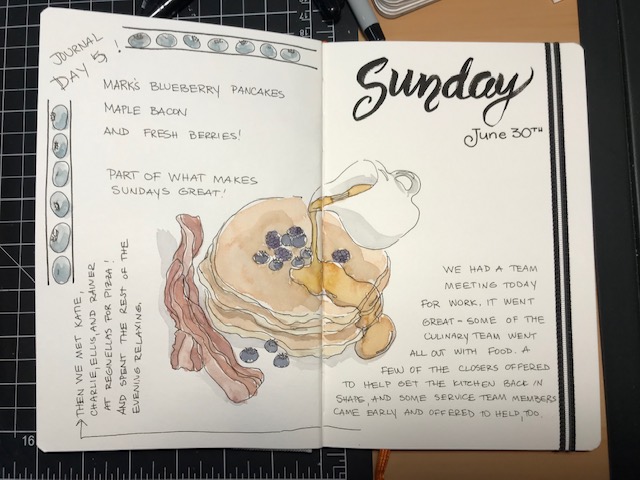 JOURNAL
DAY 5!
MARK'S BLUEBERRY PANCAKES
MAPLE BACON
AND FRESH BERRIES!
PART OF WHAT MAKES
SUNDAYS GREAT!
Sunday
June 30TH
WE HAD A TEAM
MEETING TODAY
FOR WORK. IT WENT
GREAT - SOME OF THE
CULINARY TEAM WENT
ALL OUT WITH FOOD. A
FEW OF THE CLOSERS OFFERED
TO HELP GET THE KITCHEN BACK IN
SHAPE, AND SOME SERVICE TEAM MEMBERS
CAME EARLY AND OFFERED TO HELP, TOO.
THEN WE MET KATIE,
CHARLIE, ELLIS, AND RAINER
AT REGINELLAS FOR PIZZA!
AND SPENT THE REST OF THE
EVENING RELAXING.
16